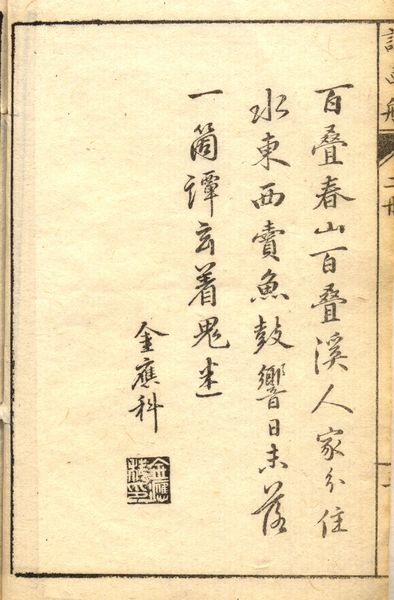 百叠春山百叠溪人家分住
水東西賣魚鼓響日未落
一箇譚玄着鬼迷
金應科